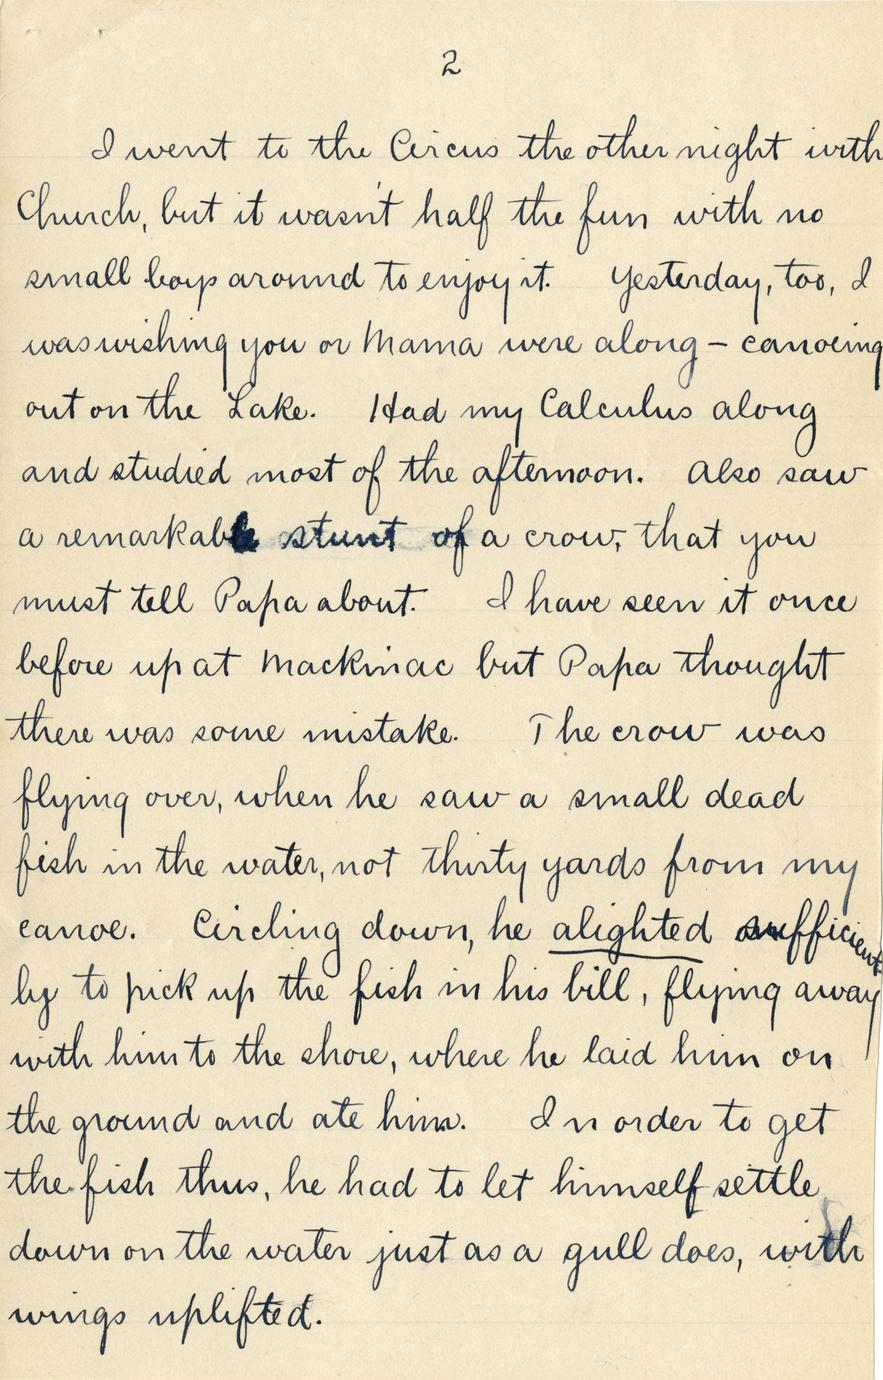 2
I went to the Circus the other night with
Church, but it wasn't half the fun with no
small boys around to enjoy it. Yesterday, too, I
was wishing you or Mama were along - canoeing
out on the Lake. Had my Calculus along
and studied most of the afternoon. Also saw
a remarkable stunt of a crow, that you
must tell Papa about. I have seen it once
before up at Mackinac but Papa thought
there was some mistake. The crow was
flying over, when he saw a small dead
fish in the water, not thirty yards from my
canoe. Circling down, he alighted sufficient
ly to pick up the fish in his bill, flying away
with him to the shore, where he laid him on
the ground and ate him. In order to get
the fish thus, he had to let himself settle
down on the water just as a gull does, with
wings uplifted.